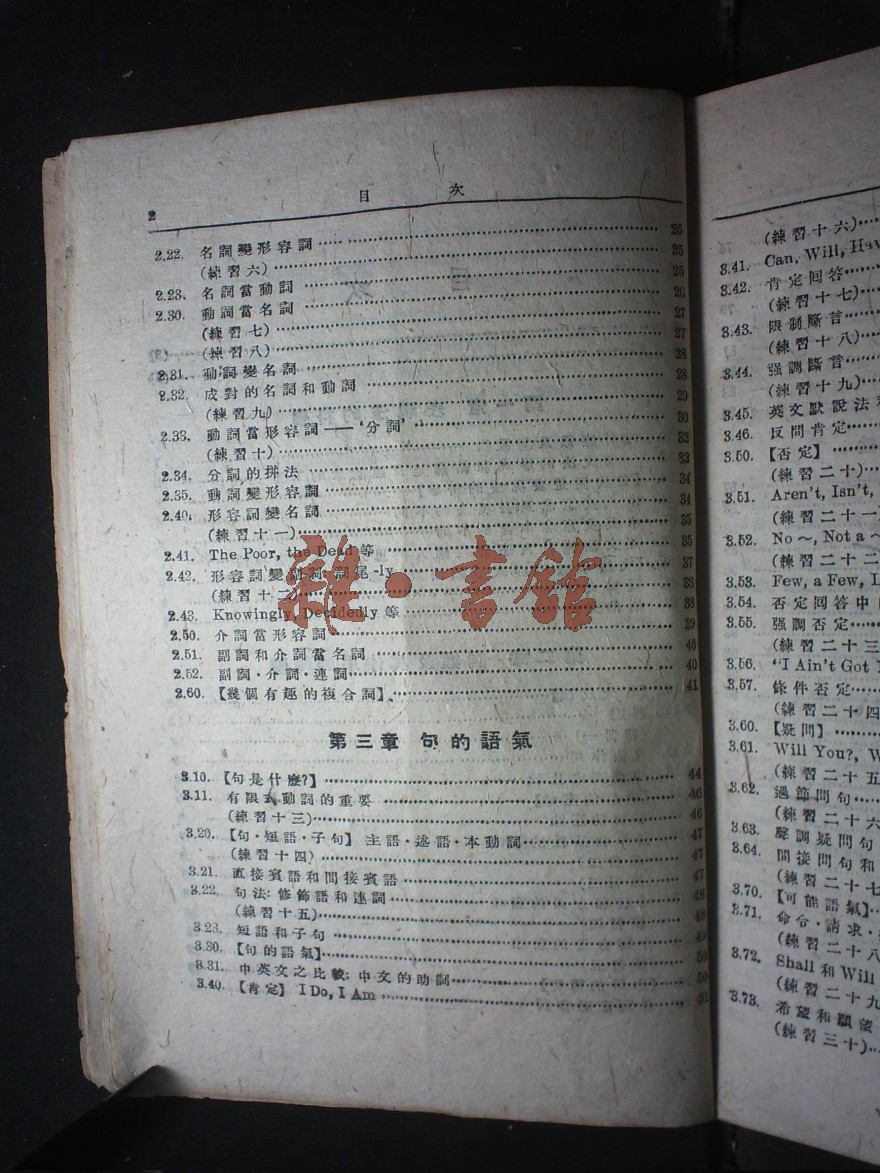 2
目 次
2.22. 名詞變形容詞 25
(練習六) 25
2.23. 名詞當動詞 25
2.30. 動詞當名詞 26
(練習七) 27
(練習八) 27
2.31. 動詞變名詞 28
2.32. 成對的名詞和動詞 28
(練習九) 29
2.33. 動詞當形容詞——‘分詞’ 30
(練習十) 32
2.34. 分詞的拼法 32
2.35. 動詞變形容詞 34
2.40. 形容詞變名詞 34
(練習十一) 35
2.41. The Poor, the Dead 等 35
2.42. 形容詞變副詞:詞尾-ly 37
(練習十二) 38
2.43. Knowingly, Decidedly 等 38
2.50. 介詞當形容詞 39
2.51. 副詞和介詞當名詞 40
2.52. 副詞·介詞·連詞 40
2.60. 【幾個有趣的複合詞】 41
第三章 句的語氣
3.10. 【句是什麼?】 44
3.11. 有限動詞的重要 46
(練習十三) 46
3.20. 【句·短語·子句】 主語·述語·本動詞 47
(練習十四) 47
3.21. 直接賓語和間接賓語 47
3.22. 句法:修飾語和連詞 48
(練習十五) 48
3.23. 短語和子句 49
3.30. 【句的語氣】 50
3.31. 中英文之比較:中文的助詞 50
3.40. 【肯定】 I Do, I Am 51
雜·書館
(練習十六)
3.41. Can, Will, Hav
3.42. 肯定回答
(練習十七)
3.43. 限制斷言
(練習十八)
3.44. 强調斷言
(練習十九)
3.45. 英文默說法和
3.46. 反問肯定
3.50. 【否定】
(練習二十)
3.51. Aren't, Isn't,
(練習二十一)
3.52. No ~, Not a ~
(練習二十二
3.53. Few, a Few, L
3.54. 否定回答中
3.55. 强調否定
(練習二十三
3.56. "I Ain't Got
3.57. 條件否定
(練習二十四
3.60. 【疑問】
3.61. Will You?, W
(練習二十五
3.62. 過節問句
(練習二十六
3.63. 聲調疑問句
3.64. 間接問句和
(練習二十七
3.70. 【可能語氣】
3.71. 命令·請求·
(練習二十八
3.72. Shall 和 Will
(練習二十九
3.73. 希望和願望
(練習三十)